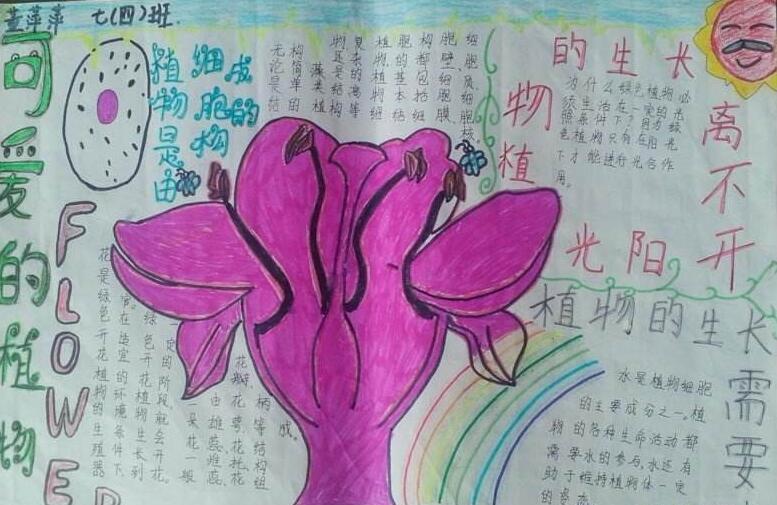 董萍萍 七(四)班.
可爱的植物
FLOWER
植物是由
细胞构
成的
无论是结
构简单的
藻类植
物还是结构
复杂的高等
植物,植物细
胞的基本结
构都包括细
胞壁、细胞膜、
细胞质、细胞核。
花是绿色开花植物的生殖器
官。在适宜的环境条件下,
绿色开花植物生长到
一定的阶段,就会开花。
朵花一般
由雄蕊、雌蕊、
花瓣、花萼、花托、花
柄等结构组
成。
植物
的生长
离不开
阳光
为什么绿色植物必
须生活在一定的光
照条件下?因为绿
色植物只有在阳光
下才能进行光合作
用。
植物的生长
需要
水是植物细胞
的主要成分之一。植
物的各种生命活动都
需要水的参与,水还有
助于维持植物体一定
的姿态